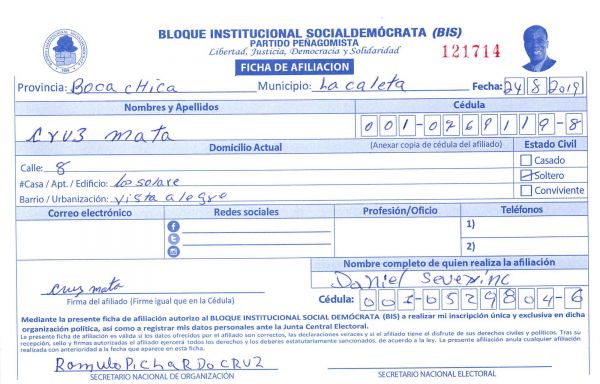 BLOQUE INSTITUCIONAL SOCIALDEMÓCRATA (BIS)
PARTIDO PEÑAGOMISTA
Libertad, Justicia, Democracia y Solidaridad
121714
FICHA DE AFILIACION
Provincia: Boca cHica Municipio: La caleta Fecha: 24 8 2019
Nombres y Apellidos Cédula
cruz mata 001-0269119-8
Domicilio Actual (Anexar copia de cédula del afiliado) Estado Civil
Calle: 8 Casado
#Casa / Apt. / Edificio: lo solare Soltero
Barrio / Urbanización: vista alegre Conviviente
Correo electrónico Redes sociales Profesión/Oficio Teléfonos
1)
2)
Nombre completo de quien realiza la afiliación
cruz mata Daniel Severinc
Firma del afiliado (Firme igual que en la Cédula) Cédula: 001-0529804-6
Mediante la presente ficha de afiliación autorizo al BLOQUE INSTITUCIONAL SOCIAL DEMÓCRATA (BIS) a realizar mi inscripción única y exclusiva en dicha
organización política, así como a registrar mis datos personales ante la Junta Central Electoral.
La presente ficha de afiliación es válida si los datos ofrecidos por el afiliado son correctos, las declaraciones veraces y si el afiliado tiene el disfrute de sus derechos civiles y políticos. Tras su
recepción, sello y firmas autorizadas el afiliado ejercerá todos los derechos y los deberes estatutariamente sancionados, de acuerdo a la ley. La presente afiliación anula cualquier afiliación
realizada con anterioridad a la fecha que aparece en esta ficha.
Romulo PicHaRDO CRUZ
SECRETARIO NACIONAL DE ORGANIZACIÓN SECRETARIO NACIONAL ELECTORAL